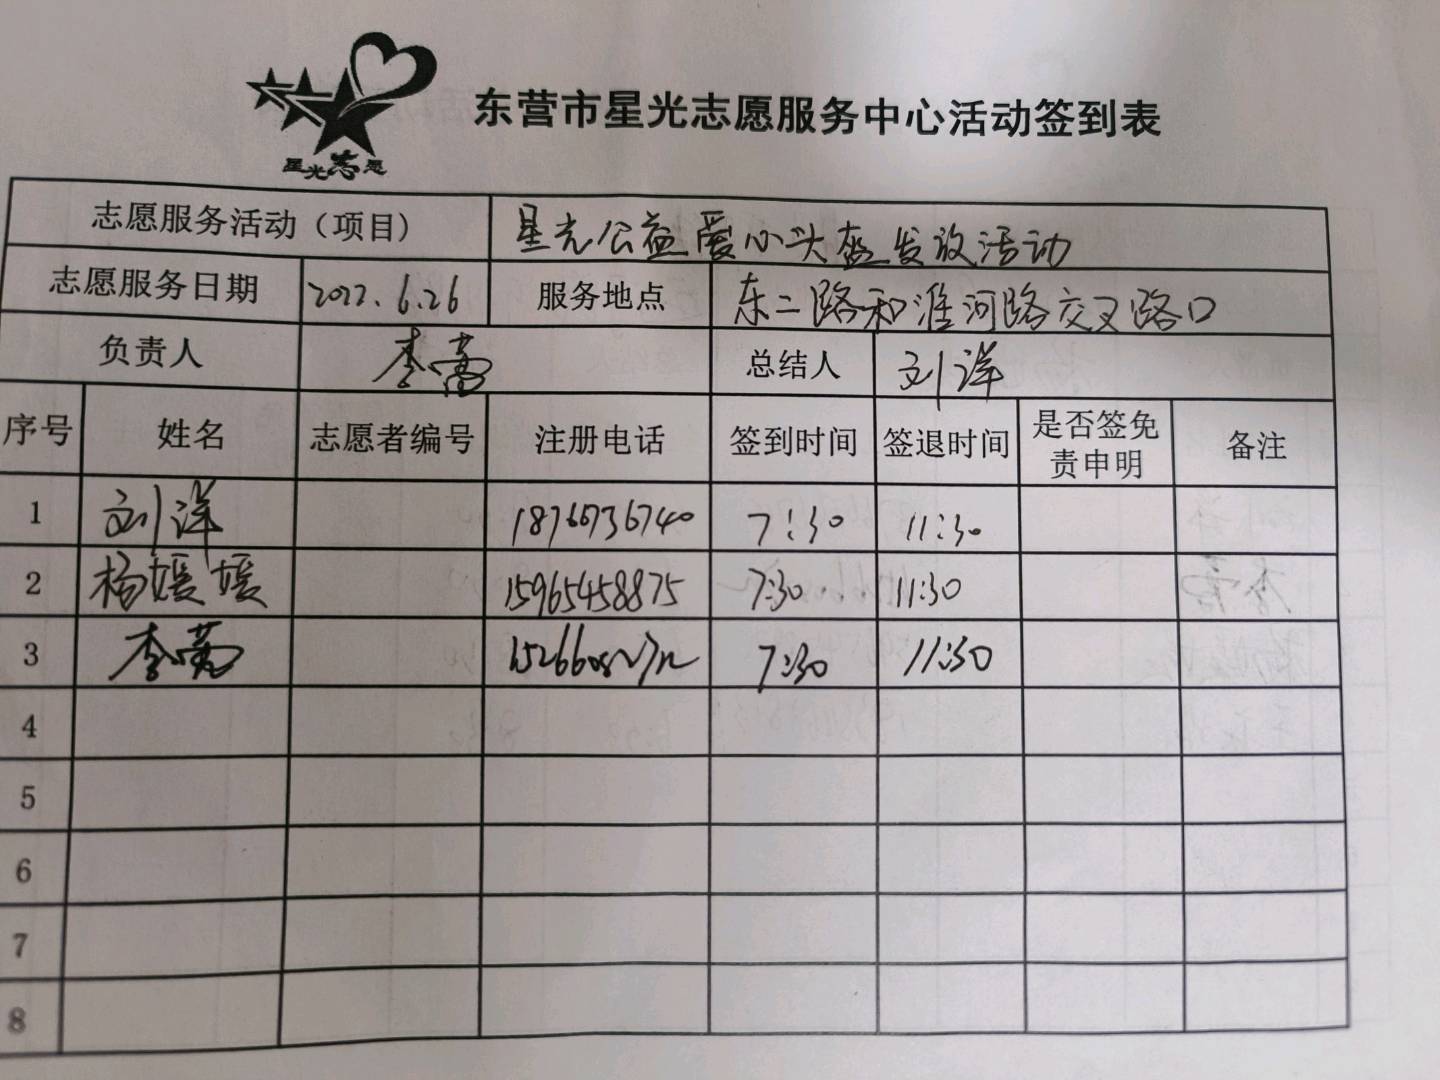 星光志愿
东营市星光志愿服务中心活动签到表
志愿服务活动（项目） 星光公益爱心头盔发放活动
志愿服务日期 2022.6.26 服务地点 东二路和淮河路交叉路口
负责人 李蒿 总结人 刘洋
序号 姓名 志愿者编号 注册电话 签到时间 签退时间 是否签免责申明 备注
1 刘洋 18766736740 7:30 11:30
2 杨媛媛 15965458875 7:30 11:30
3 李蒿 7:30 11:30
4
5
6
7
8